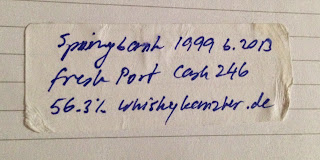 Springbank 1999 b.2013
fresh Port Cask 246
56.3% whiskykanzler.de